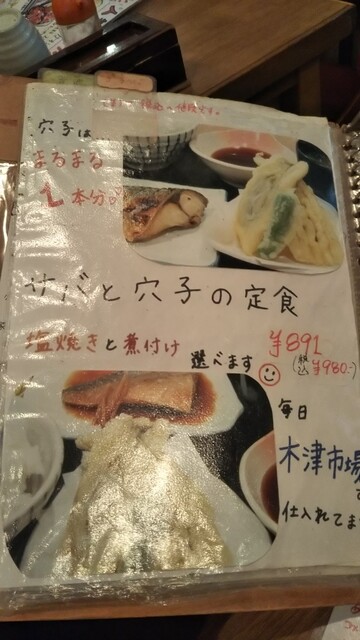 穴子は
まるまる
1本分
サバと穴子の定食
塩焼きと煮付け
選べます
¥891
(税込¥980-)
毎日
木津市場
仕入れてま